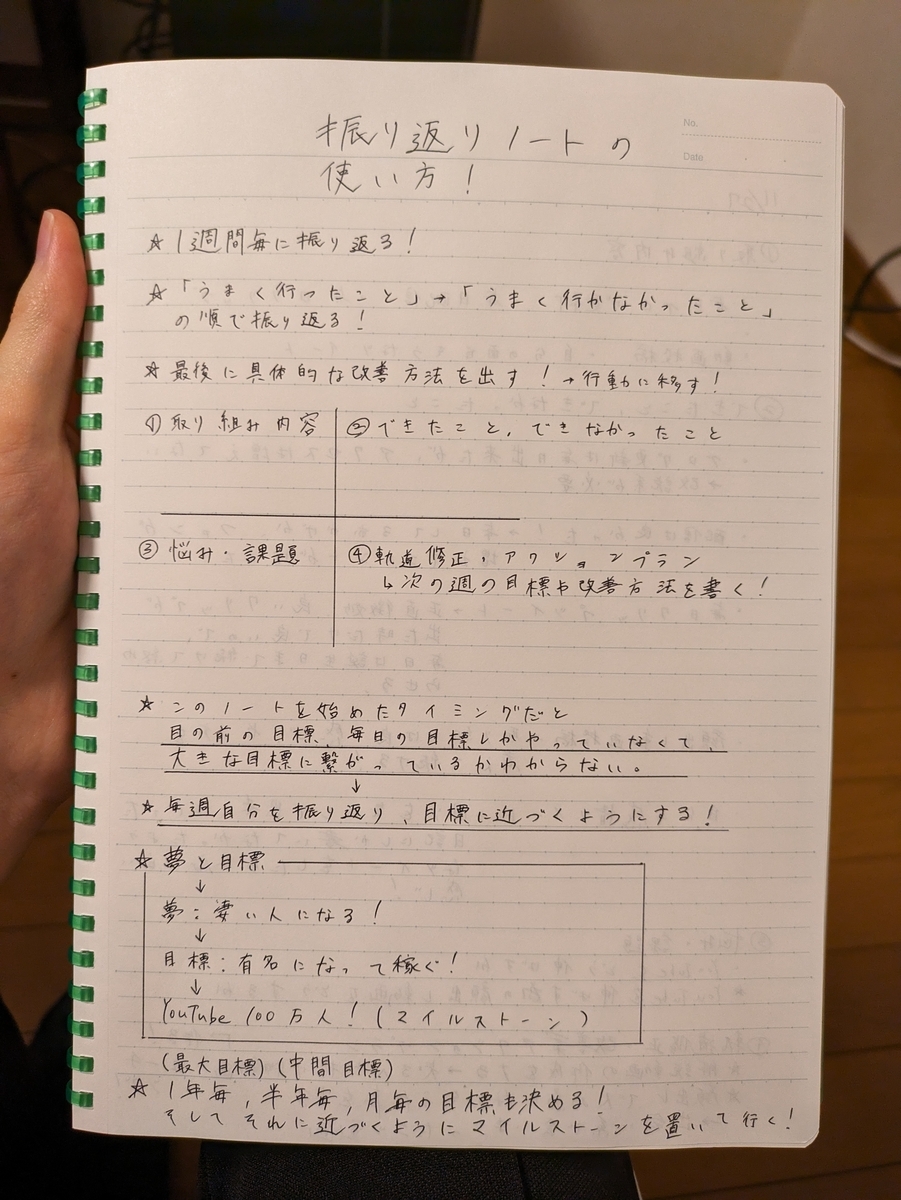 No.
Date
振り返りノートの
使い方!
☆ 1週間毎に振り返る!
☆ 「うまく行ったこと」→「うまく行かなかったこと」
の順で振り返る!
☆ 最後に具体的な改善方法を出す!→行動に移す!
① 取り組み内容
② できたこと、できなかったこと
③ 悩み・課題
④ 軌道修正・アクションプラン
↳次の週の目標や改善方法を書く!
☆ このノートを始めたタイミングだと
目の前の目標、毎日の目標しかやっていなくて、
大きな目標に繋がっているかわからない。
↓
☆ 毎週自分を振り返り、目標に近づくようにする!
☆ 夢と目標
↓
夢:凄い人になる!
↓
目標:有名になって稼ぐ!
↓
YouTube 100万人!(マイルストーン)
(最大目標)(中間目標)
☆ 1年毎,半年毎,月毎の目標も決める!
そしてそれに近づくようにマイルストーンを置いて行く!